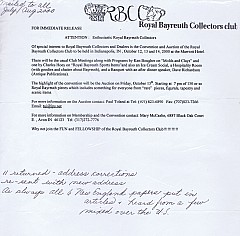 mailed to all
July/Aug 2000
RBCC
Royal Bayreuth Collectors club
FOR IMMEDIATE RELEASE
ATTENTION : Enthusiastic Royal Bayreuth Collectors
Of special interest to Royal Bayreuth Collectors and Dealers is the Convention and Auction of the Royal
Bayreuth Collectors Club to be held in Indianapolis, IN, October 12, 13 and 14, 2000 at the Marriott Hotel
There will be the usual Club Meetings along with Programs by Ken Boughter on "Molds and Clays" and
one by Charles on "Royal Bayreuth Sports Items" and also an Ice Cream Social, a Hospitality Room
(with goodies and chatter about Bayreuth), and a Banquet with an after dinner speaker, Dave Richardson
(Antique Publications).
The highlight of the convention will be the Auction on Friday, October 13th. Starting at 7 pm of 150 or so
Royal Bayreuth pieces which includes something for everyone from "rare" pieces, figurals, tapestry and
scenic items
For more information on the Auction contact: Paul
For more information on Membership and the Convention contact: Mary McCaslin, 6887 Black Oak Court
E., Avon IN 46123 Tel (317)272-7776
Why not join the FUN and FELLOWSHIP of the Royal Bayreuth Collectors Club!!!
11 returned - address corrections
re-sent with new address
As always all 6 New England papers put in
articles + heard from a few
mixed over the U.S.